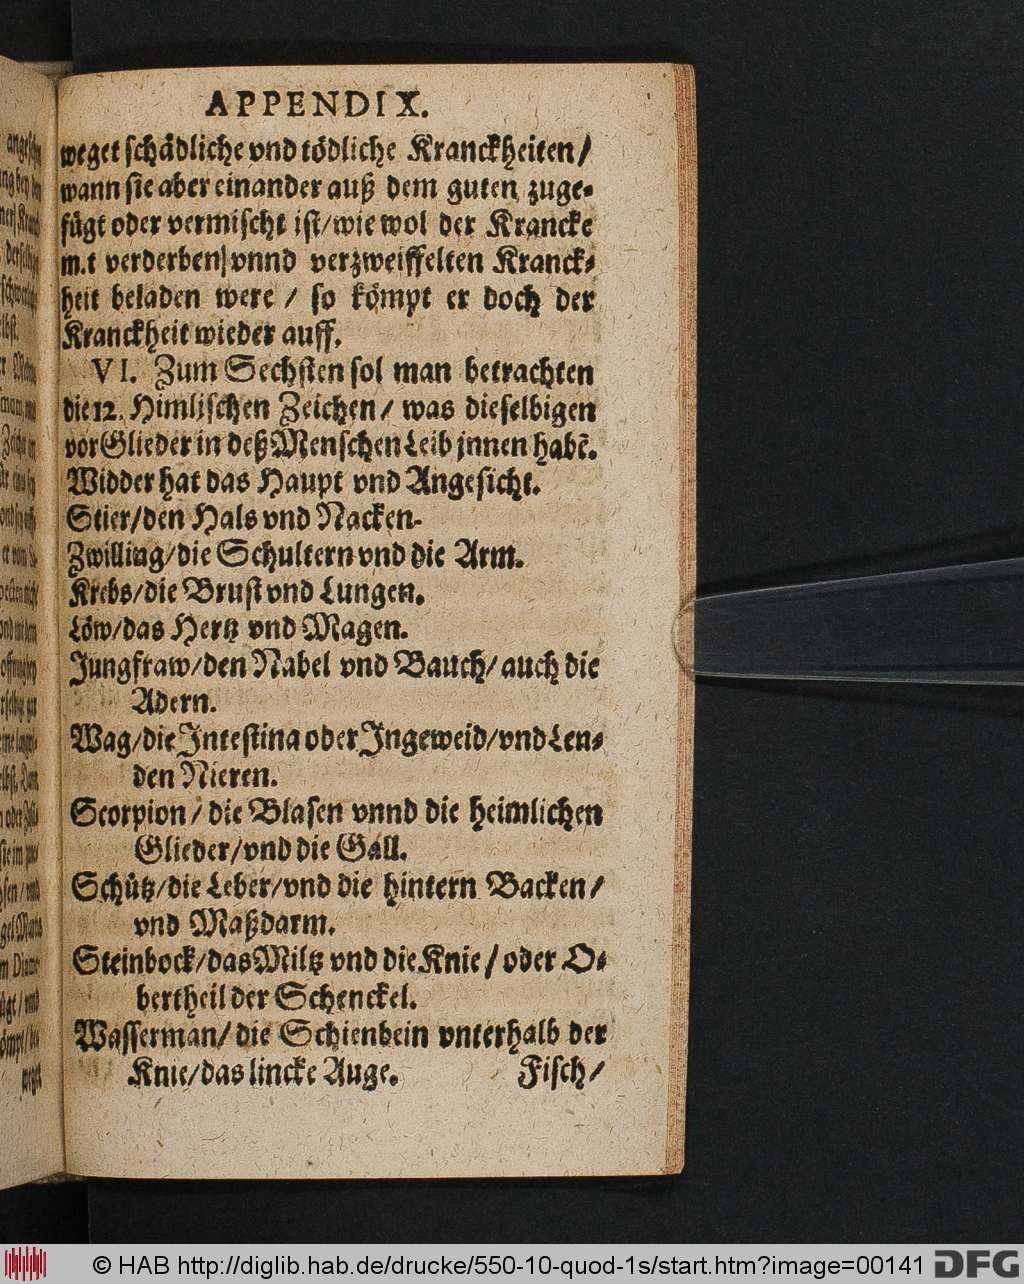 APPENDIX.
weget schådliche vnd tödliche Kranckheiten/
wann sie aber einander auß dem guten zuge-
fügt oder vermischt ist/wie wol der Krancke
m.t verderben/vnnd verzweiffelten Kranck-
heit beladen were / so kömpt er doch der
Kranckheit wieder auff.
VI. Zum Sechsten sol man betrachten
die 12. Himlischen Zeichen/ was dieselbigen
vor Glieder in deß Menschen Leib jnnen habẽ.
Widder hat das Haupt vnd Angesicht.
Stier/den Hals vnd Nacken.
Zwilling/die Schultern vnd die Arm.
Krebs/die Brust vnd Lungen.
Löw/das Hertz vnd Magen.
Jungfraw/den Nabel vnd Bauch/auch die
Adern.
Wag/die Intestina oder Ingeweid/vnd Len-
den Nieren.
Scorpion/ die Blasen vnnd die heimlichen
Glieder/vnd die Gall.
Schütz/die Leber/vnd die hintern Backen/
vnd Maßdarm.
Steinbock/das Miltz vnd die Knie/oder O-
bertheil der Schenckel.
Wasserman/ die Schienbein vnterhalb der
Knie/das lincke Auge. Fisch/
© HAB http://diglib.hab.de/drucke/550-10-quod-1s/start.htm?image=00141 DFG